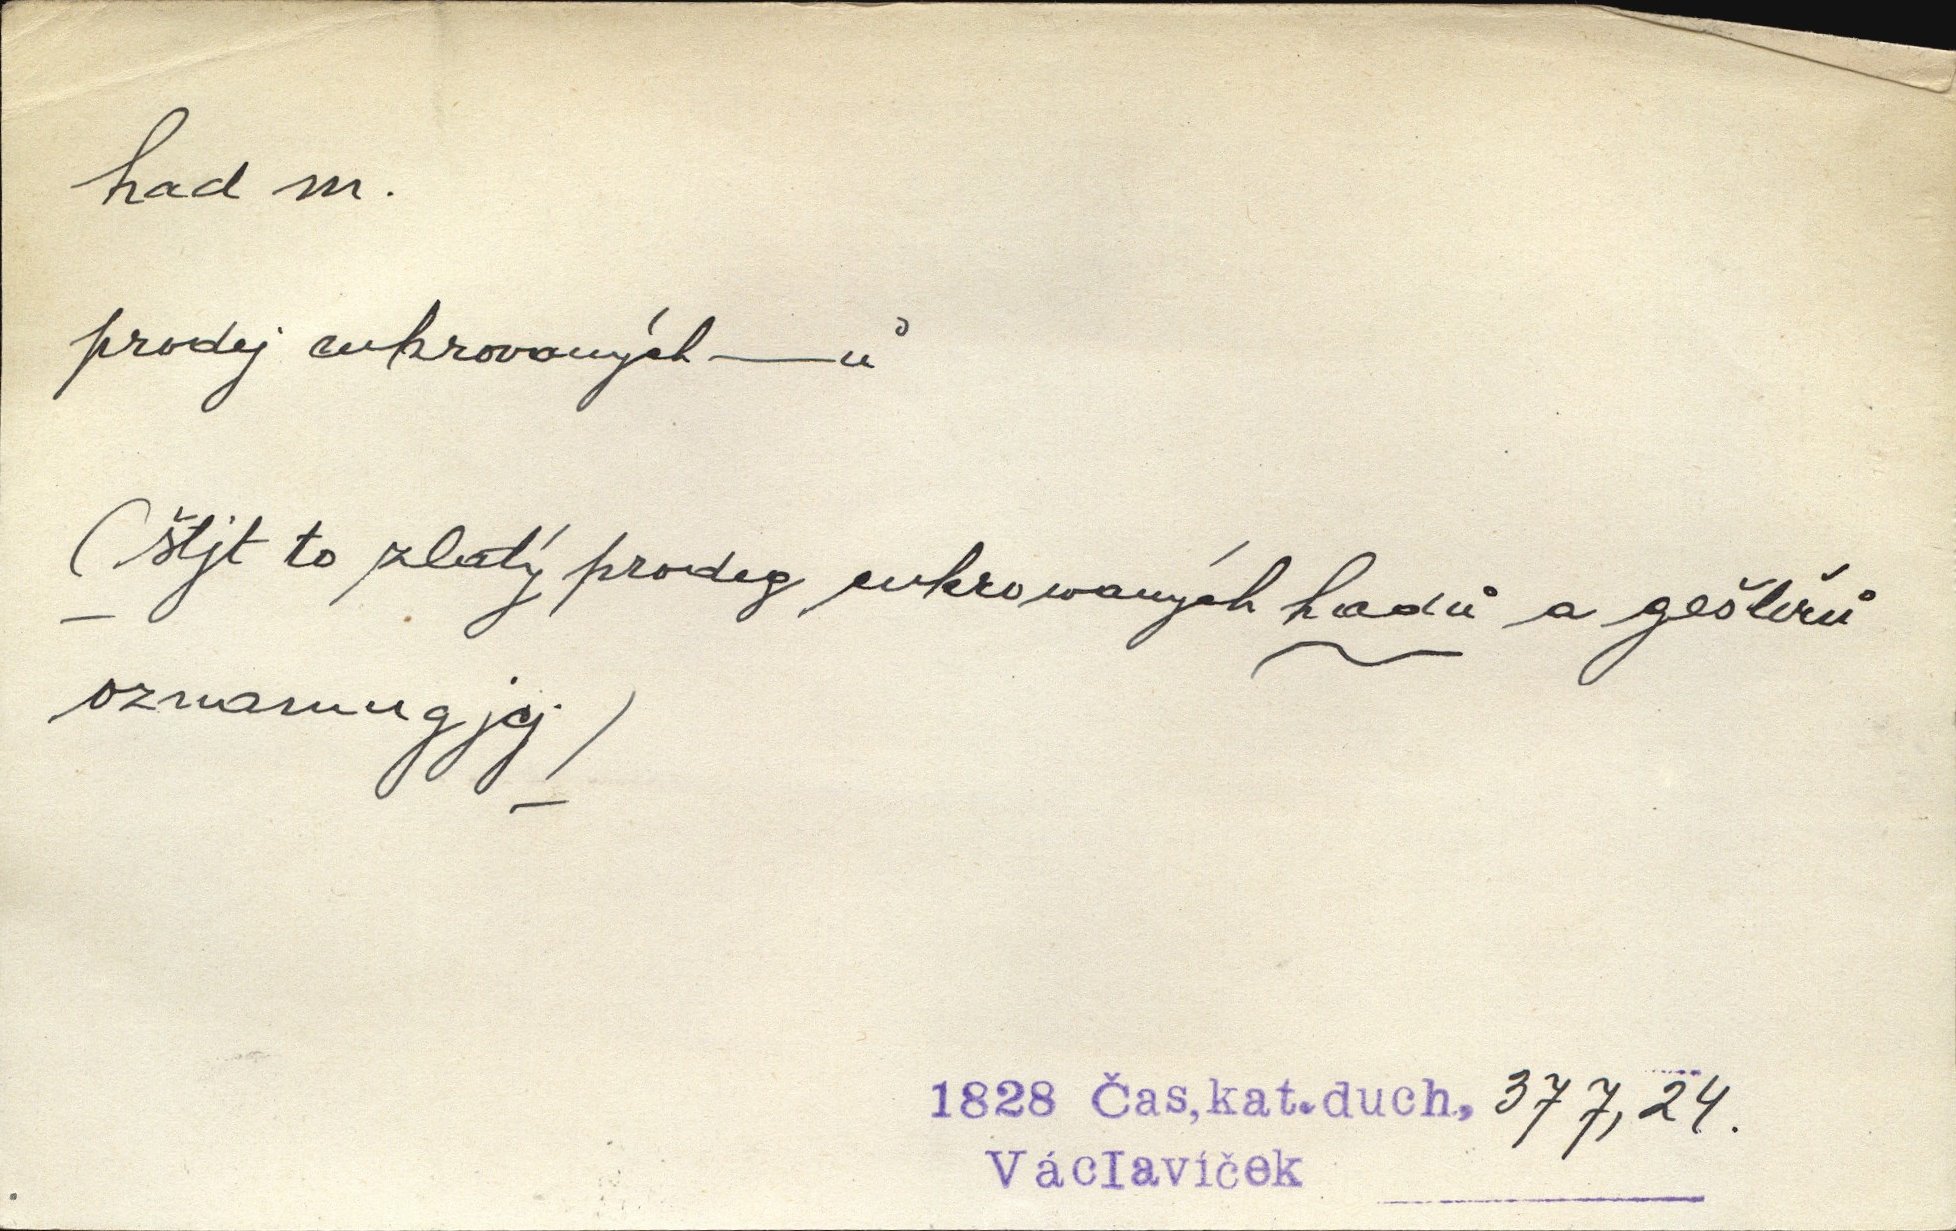 had m.
prodej cukrovaných —— ů
(štjt to zlatý prodeg cukrowaných hadů a geštěrů
oznamugjcj)
1828 Čas,kat.duch, 377, 24.
Václavíček